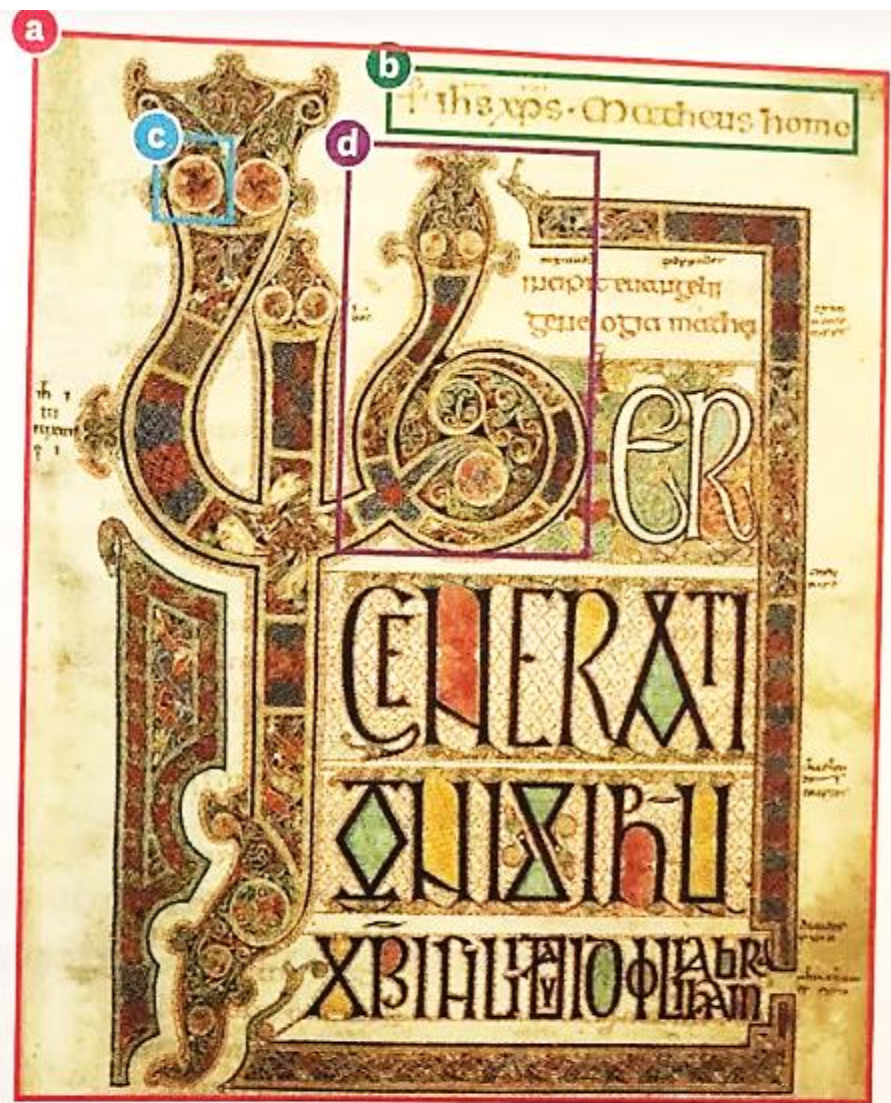 a
b
+ ihs xps · Matheus homo
c
d
incipit euangelii
genelogia mathei
LIBER
GENERATI
ONIS IHU
XPI FILII DAVID FILII ABRAHAM